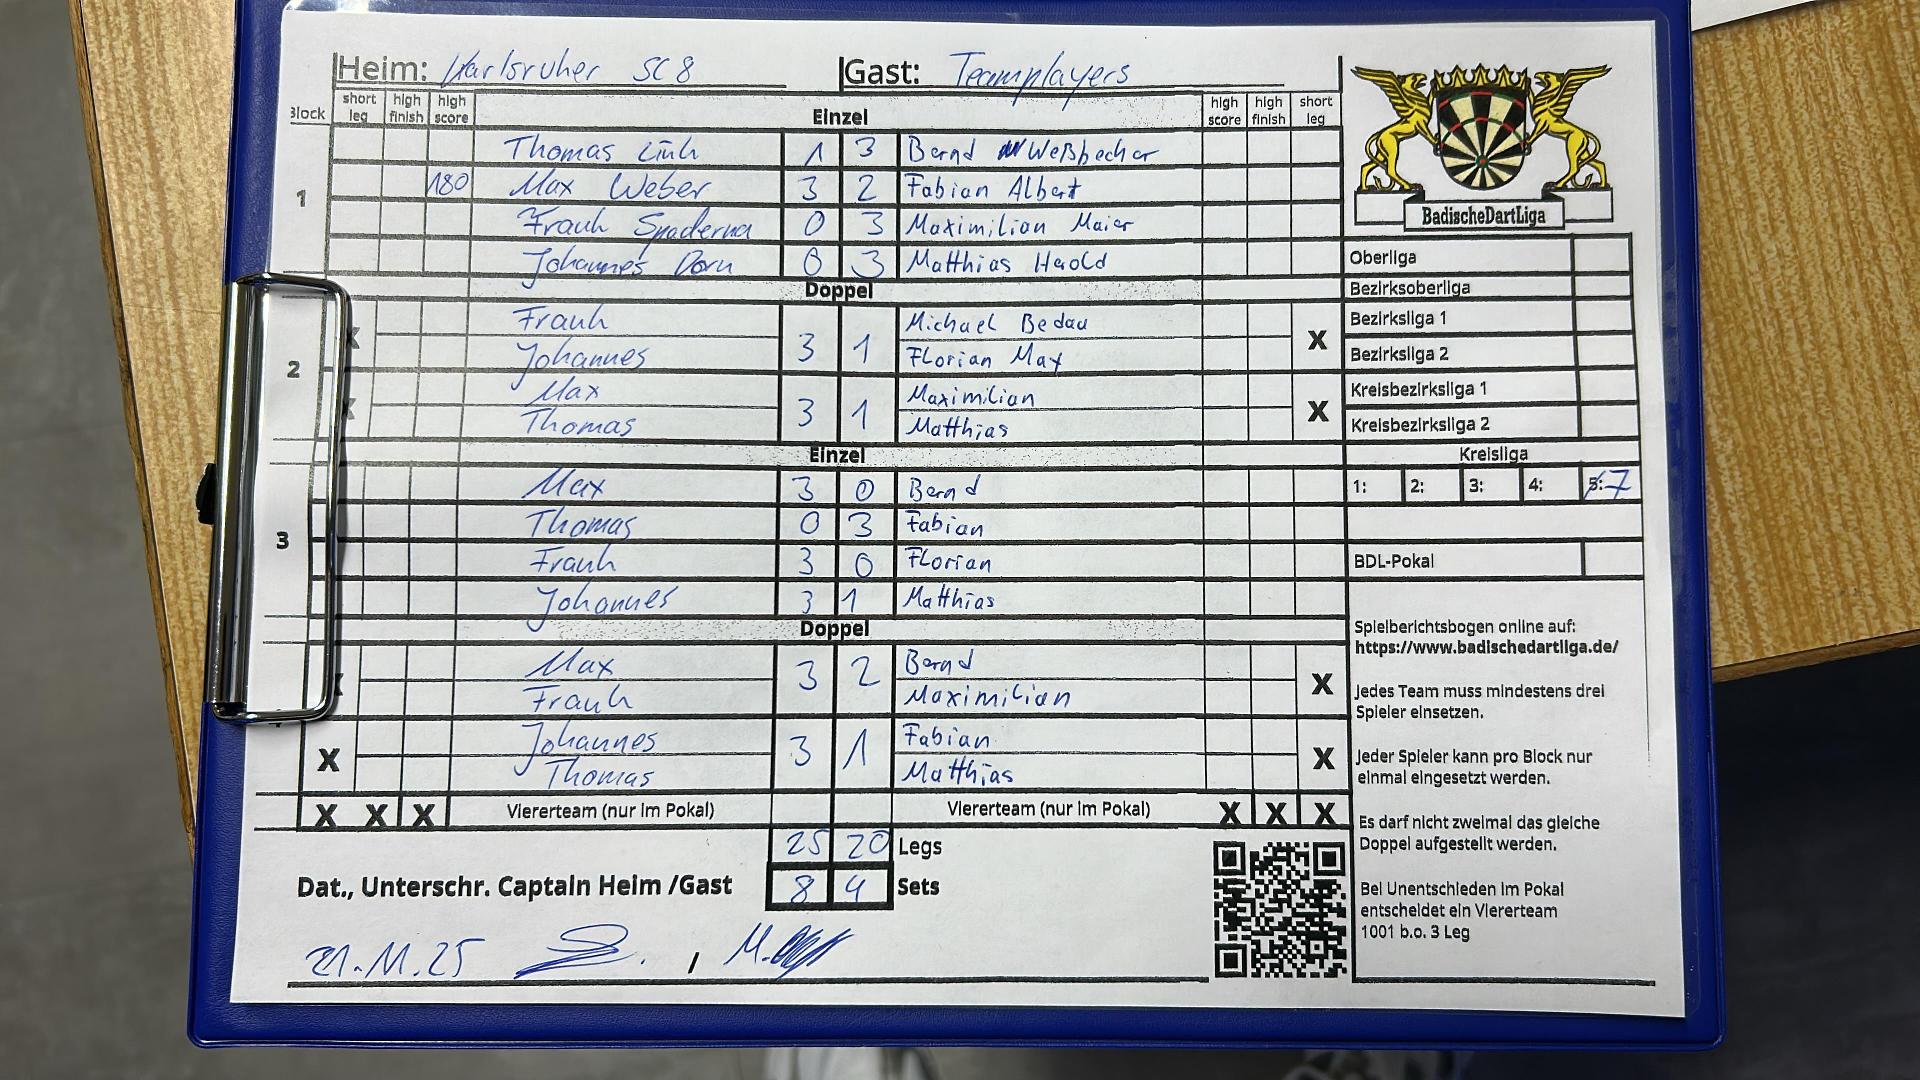 Heim: Karlsruher SC 8 Gast: Teamplayers
Block short leg high finish high score Einzel high score high finish short leg
1
Thomas Link 1 3 Bernd Weßbecher
180 Max Weber 3 2 Fabian Albert
Frank Spaderna 0 3 Maximilian Maier
Johannes Dorn 0 3 Matthias Herold
Doppel
2
X Frank 3 1 Michael Bedau X
Johannes Florian Max
X Max 3 1 Maximilian X
Thomas Matthias
Einzel
3
Max 3 0 Bernd
Thomas 0 3 Fabian
Frank 3 0 Florian
Johannes 3 1 Matthias
Doppel
X Max 3 2 Bernd X
Frank Maximilian
X Johannes 3 1 Fabian X
Thomas Matthias
X X X Viererteam (nur im Pokal) Viererteam (nur im Pokal) X X X
25 20 Legs
Dat., Unterschr. Captain Heim /Gast 8 4 Sets
21.11.25 / M.
BadischeDartLiga
Oberliga
Bezirksoberliga
Bezirksliga 1
Bezirksliga 2
Kreisbezirksliga 1
Kreisbezirksliga 2
Kreisliga
1: 2: 3: 4: 5: 7
BDL-Pokal
Spielberichtsbogen online auf:
https://www.badischedartliga.de/
Jedes Team muss mindestens drei
Spieler einsetzen.
Jeder Spieler kann pro Block nur
einmal eingesetzt werden.
Es darf nicht zweimal das gleiche
Doppel aufgestellt werden.
Bei Unentschieden im Pokal
entscheidet ein Viererteam
1001 b.o. 3 Leg